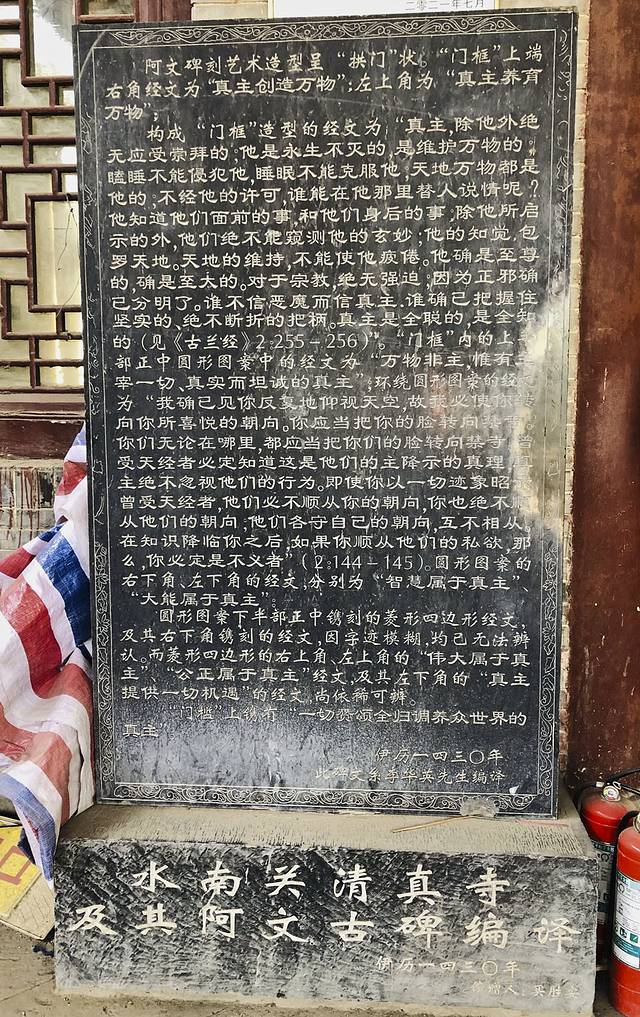 二零二一年七月
阿文碑刻艺术造型呈“拱门”状。“门框”上端
右角经文为“真主创造万物”;左上角为“真主养育
万物”;
构成“门框”造型的经文为“真主,除他外绝
无应受崇拜的;他是永生不灭的,是维护万物的。
瞌睡不能侵犯他,睡眠不能克服他;天地万物都是
他的;不经他的许可,谁能在他那里替人说情呢?
他知道他们面前的事,和他们身后的事;除他所启
示的外,他们绝不能窥测他的玄妙;他的知觉,包
罗天地。天地的维持,不能使他疲倦。他确是至尊
的,确是至大的。对于宗教,绝无强迫;因为正邪确
已分明了。谁不信恶魔而信真主,谁确已把握住
坚实的、绝不断折的把柄。真主是全聪的,是全知
的(见《古兰经》2:255—256)”。“门框”内的上半
部正中圆形图案中的经文为“万物非主,惟有主
宰一切、真实而坦诚的真主”;环绕圆形图案的经文
为“我确已见你反复地仰视天空,故我必使你转
向你所喜悦的朝向。你应当把你的脸转向禁寺。
你们无论在哪里,都应当把你们的脸转向禁寺。曾
受天经者必定知道这是他们的主降示的真理,真
主绝不忽视他们的行为。即使你以一切迹象昭示
曾受天经者,他们必不顺从你的朝向,你也绝不顺
从他们的朝向;他们各守自己的朝向,互不相从。
在知识降临你之后,如果你顺从他们的私欲,那
么,你必定是不义者”(2:144—145)。圆形图案的
右下角、左下角的经文,分别为“智慧属于真主”、
“大能属于真主”。
圆形图案下半部正中镌刻的菱形四边形经文,
及其右下角镌刻的经文,因字迹模糊,均已无法辨
认。而菱形四边形的右上角、左上角的“伟大属于真
主”、“公正属于真主”经文,及其左下角的“真主
提供一切机遇”的经文,尚依稀可辨。
“门槛”上镌有“一切赞颂全归调养众世界的
真主
伊历一四三〇年
此碑文系李华英先生编译
水南关清真寺
及其阿文古碑编译
伊历一四三〇年